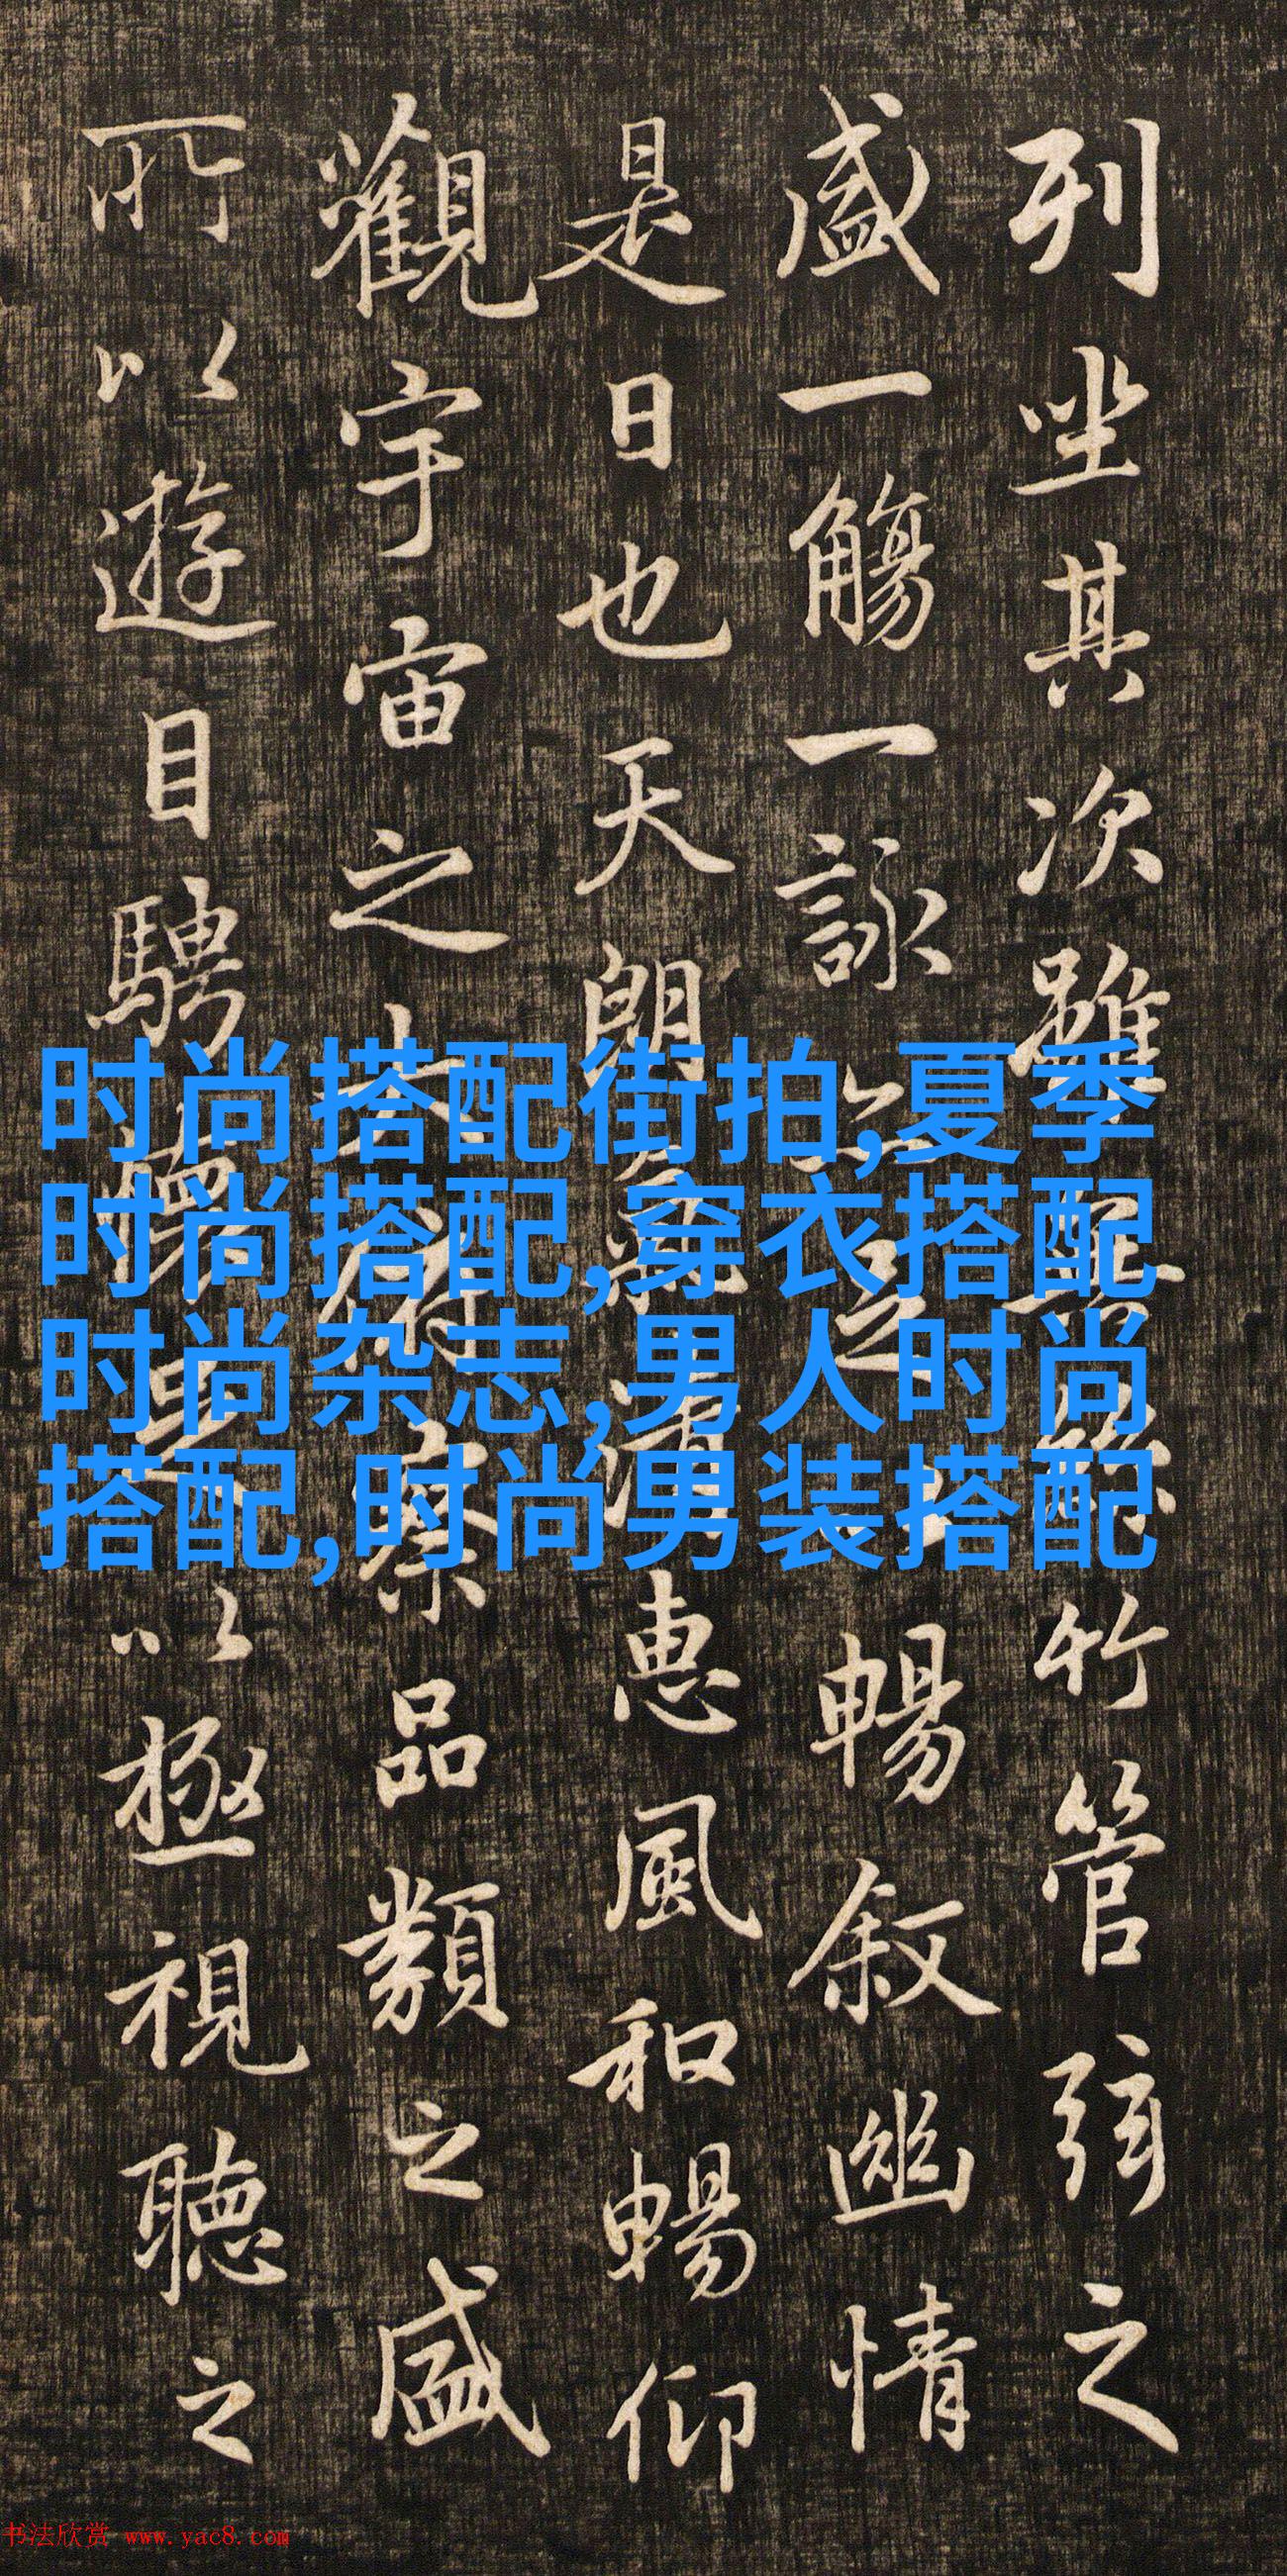 列坐其次雖無絲竹管弦之
盛一觴一詠亦足以暢叙幽情
是日也天朗氣清惠風和暢仰
觀宇宙之大俯察品類之盛
所以遊目騁懷足以極視聽之
时尚搭配街拍,夏季
时尚搭配,穿衣搭配
时尚杂志,男人时尚
搭配,时尚男装搭配
书法欣赏 www.yac8.com